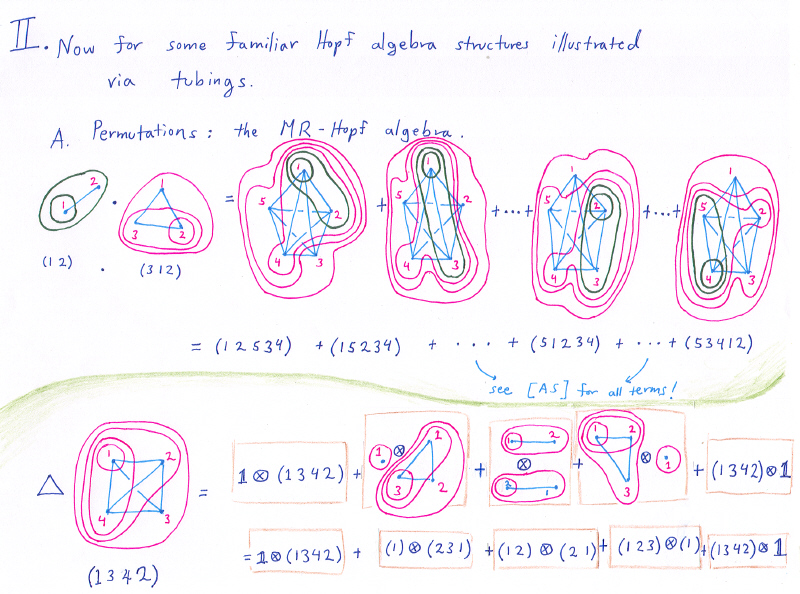 II. Now for some familiar Hopf algebra structures illustrated
via tubings.
A. Permutations: the MR-Hopf algebra.
1 2 · 1 3 2 = 1 5 2 4 3 + 1 5 2 4 3 +···+ 1 5 2 4 3 +···+ 1 5 2 4 3
(12) · (312)
= (12534) + (15234) + · · · + (51234) + · · · + (53412)
see [AS] for all terms!
Δ 1 2 4 3 = 1 ⊗ (1342) + 1 ⊗ 1 3 2 + 1 2 ⊗ 2 1 + 1 2 3 ⊗ 1 + (1342) ⊗ 1
(1342)
= 1 ⊗ (1342) + (1) ⊗ (231) + (12) ⊗ (21) + (123) ⊗ (1) + (1342) ⊗ 1